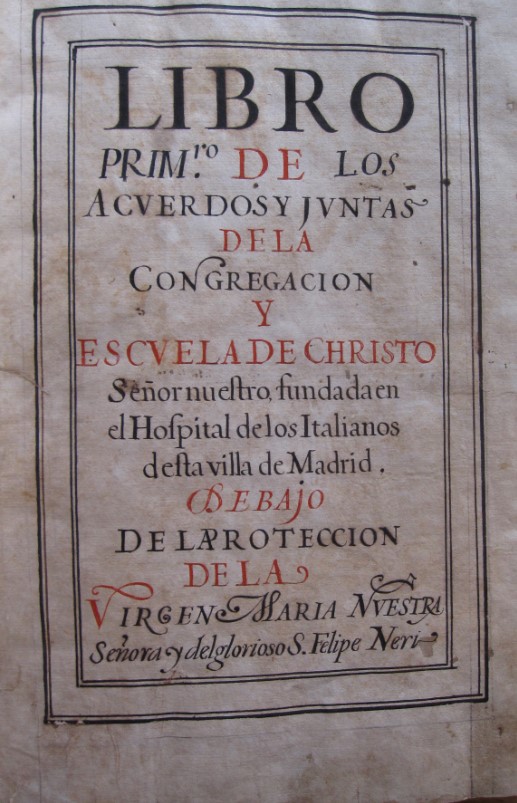 LIBRO
PRIM.ro DE LOS
ACVERDOS Y JVNTAS
DE LA
CONGREGACION
Y
ESCVELA DE CHRISTO
Señor nueſtro, fundada en
el Hoſpital de los Italianos
deſta villa de Madrid.
DEBAJO
DE LA PROTECCION
DE LA
VIRGEN MARIA NVESTRA
Señora y del glorioso S. Felipe Neri